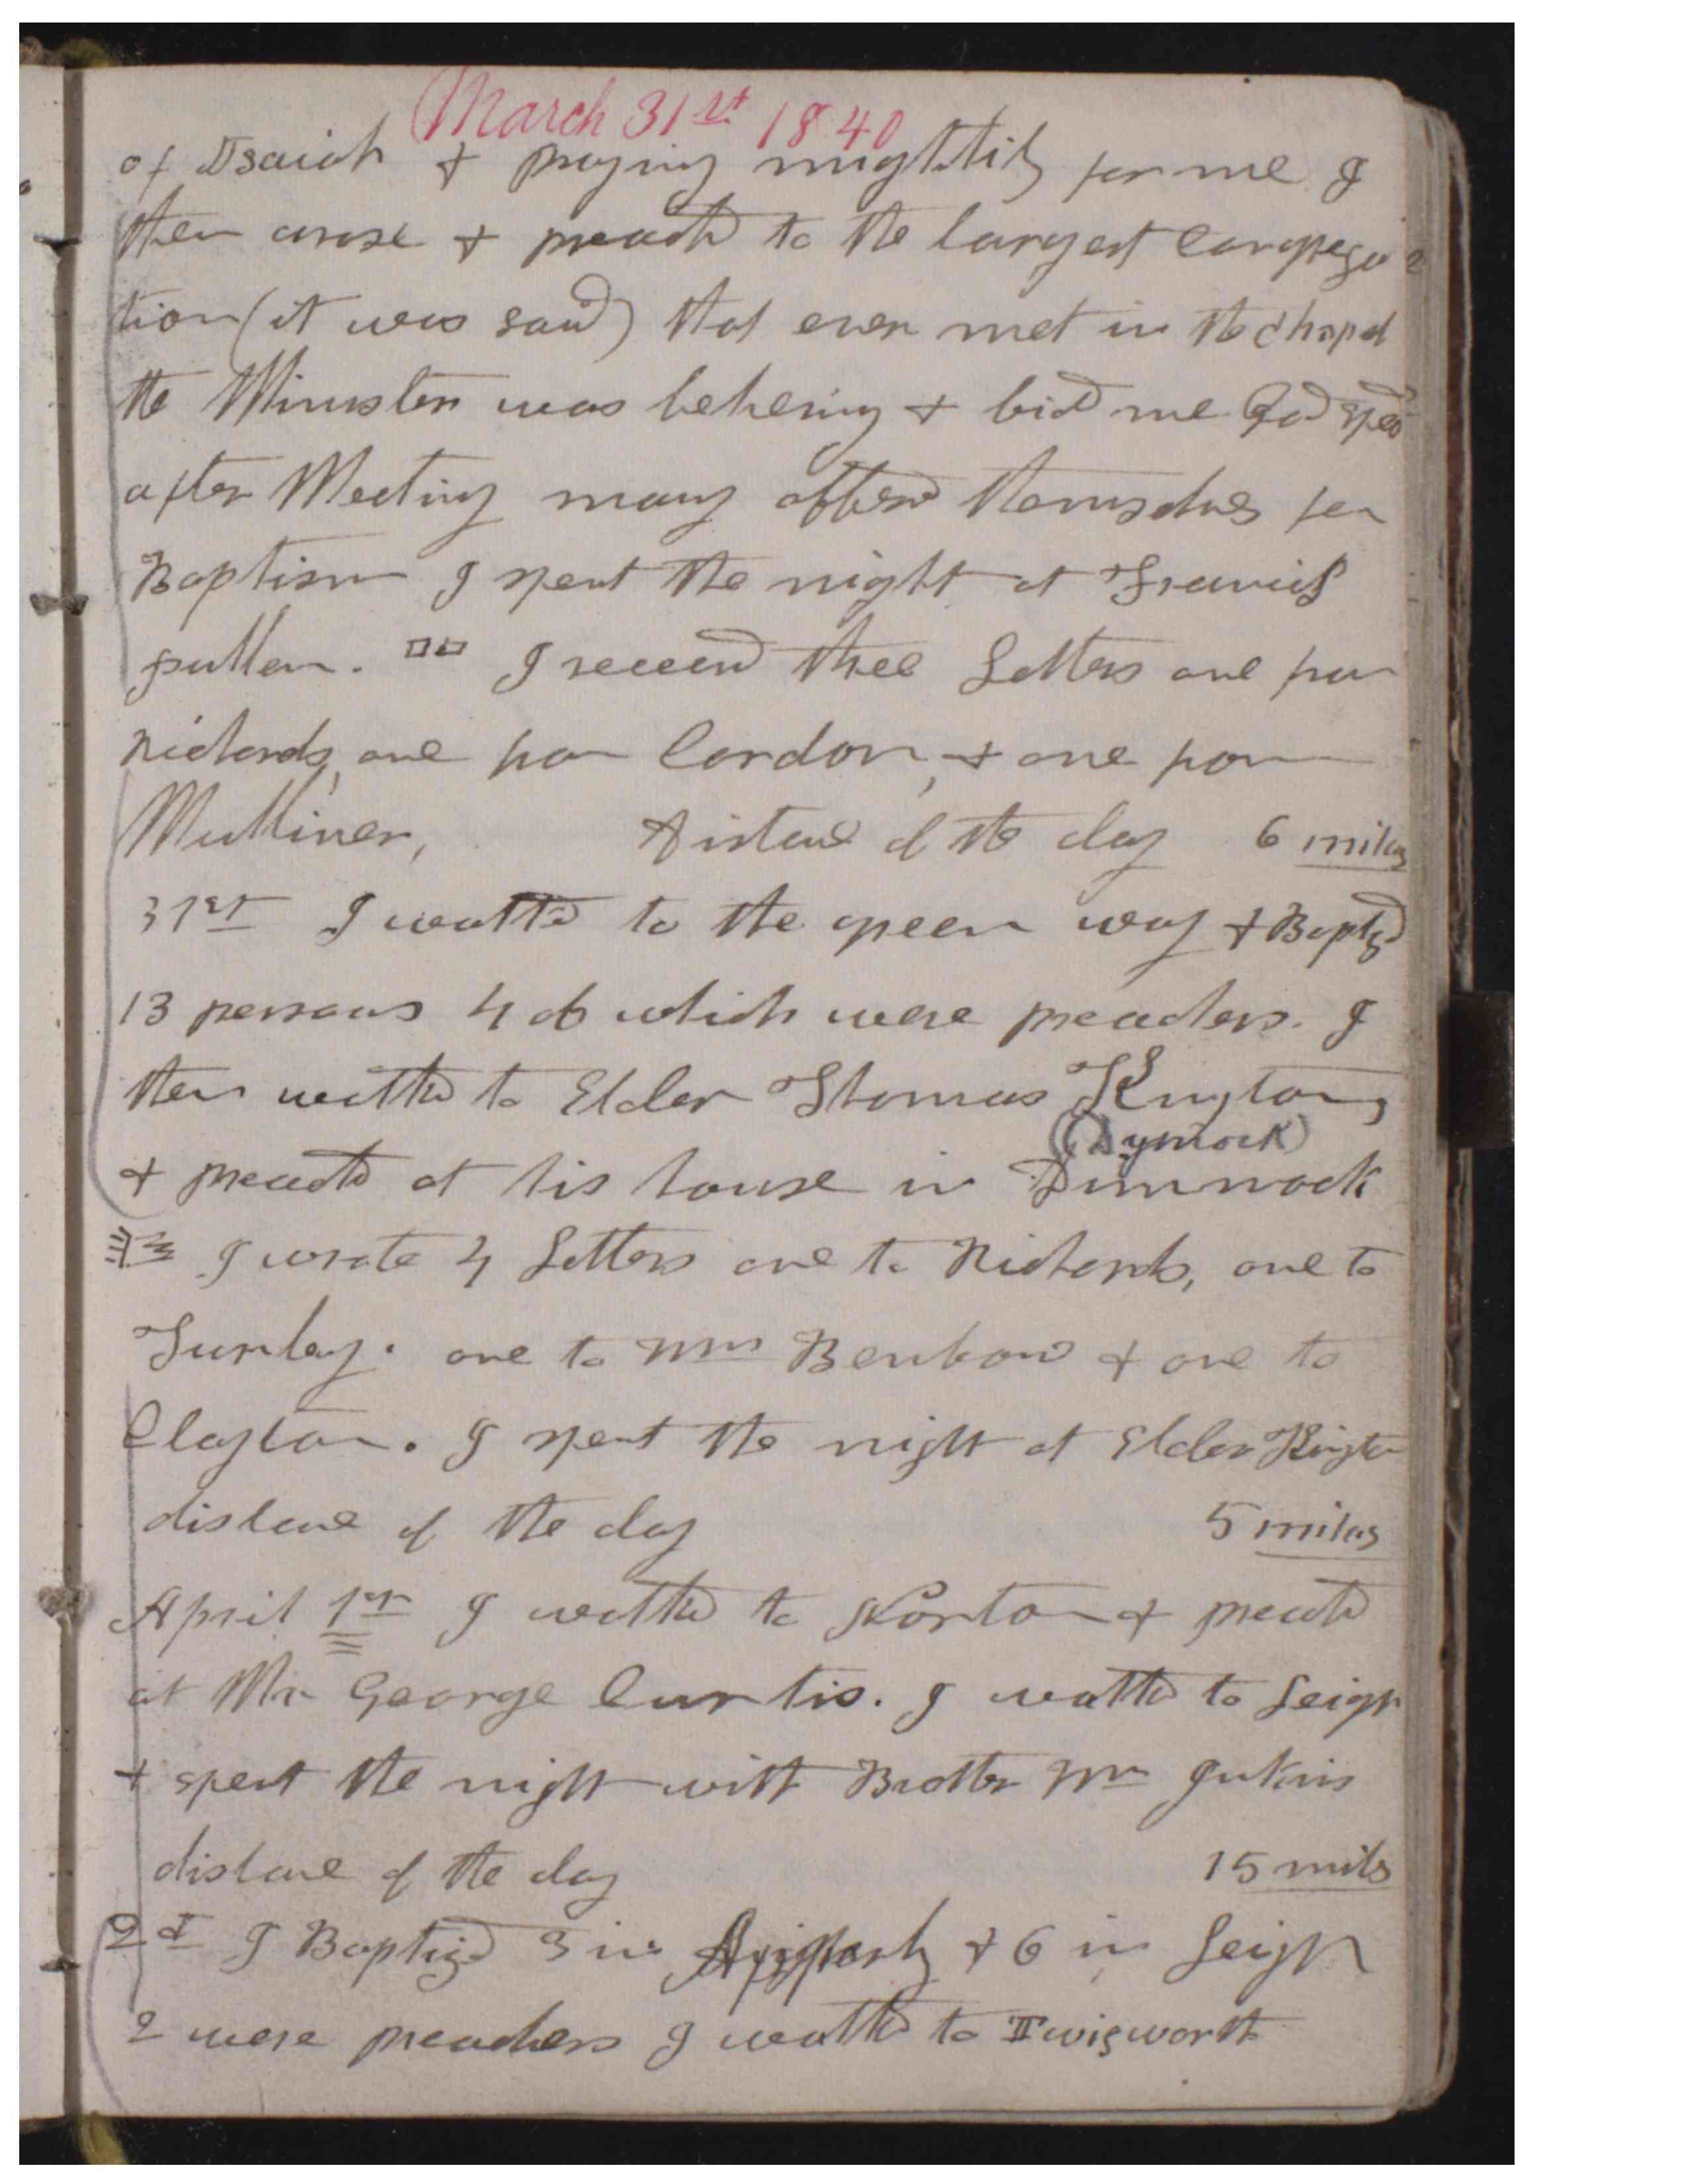 March 31st 1840
of Isaiah & praying mightily for me I
then arose & preachd to the largest congrega
tion (it was said) that ever met in the chapel
the Minister was beheving & bid me God sped
after Meeting many offerd themselves for
Baptism I spent the night at Francis
pullen. I receievd three Letters one from
Richards, one from Cordon, & one from
Mulliner, distance of the day 6 miles
31st I walked to the green way & Baptized
13 persons 4 of which were preachers. I
then walked to Elder Thomas Kington,
(Dymock)
& preachd at his house in Dimmock
I wrote 4 Letters one to Richards, one to
Turley. one to Wm Benbow & one to
Clayton. I spent the night at Elder Kington
distance of the day 5 miles
April 1st I walked to Norton & preachd
at Mr. George Curtis. I walked to Leigh
& spent the night with Brother Wm Jinkins
distance of the day 15 miles
2d I Baptized 3 in & 6 in Leigh
2 were preachers I walked to Twigworth